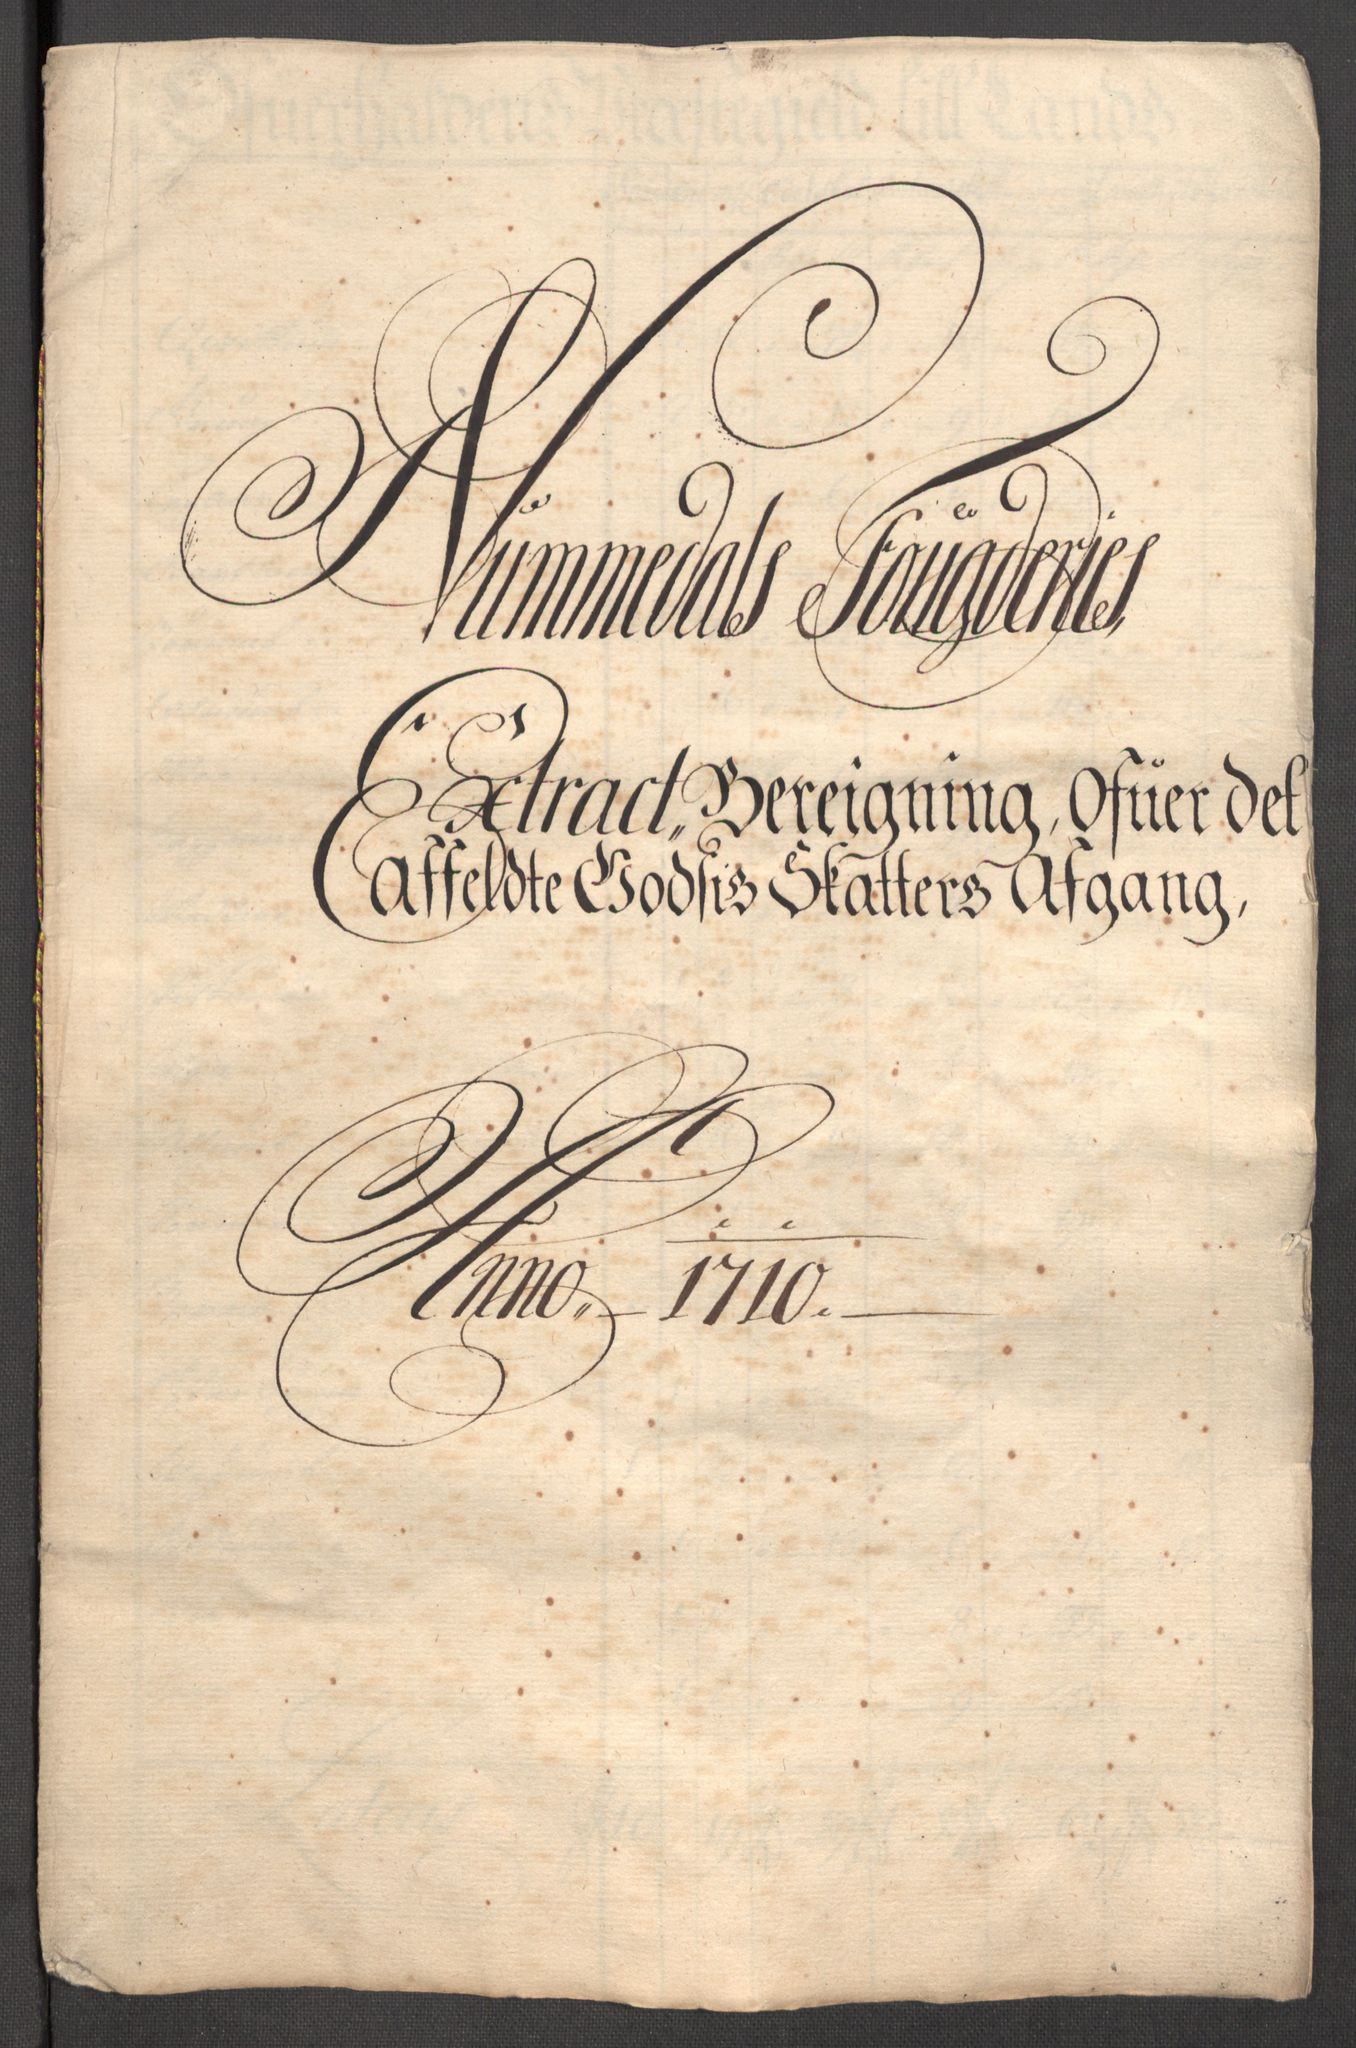 Nummedals Fougderies
Extract, Bereigning, Ofuer det
affeldte Godsis Skatters Afgang,
Anno. 1710.